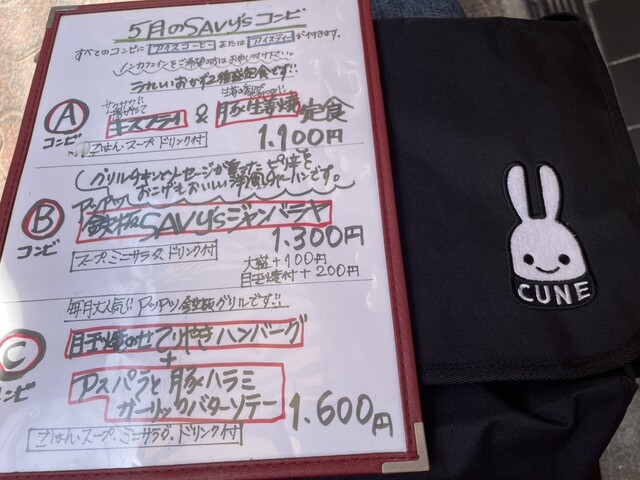 5月のSAVy'sコンビ
すべてのコンビに アイスコーヒー または アイスティー が付きます。
ノンカフェインをご希望の方はお申し付け下さい。
うれしいおかず2種盛定食です!!
A
コンビ
キスフライ & 豚生姜焼 定食
1.100円
ごはん・スープ・ドリンク付
グリルチキンとソーセージが
おこげもおいしい洋風チャーハンです。
B
コンビ
アツアツ
鉄板SAVy'sジャンバラヤ
1.300円
スープ・ミニサラダ・ドリンク付
大盛+100円
目玉焼付+200円
毎月大人気!! アツアツ鉄板グリルです!!
C
コンビ
目玉焼のせてりやきハンバーグ
+
アスパラと豚ハラミ
ガーリックバターソテー
1.600円
ごはん・スープ・ミニサラダ・ドリンク付
CUNE